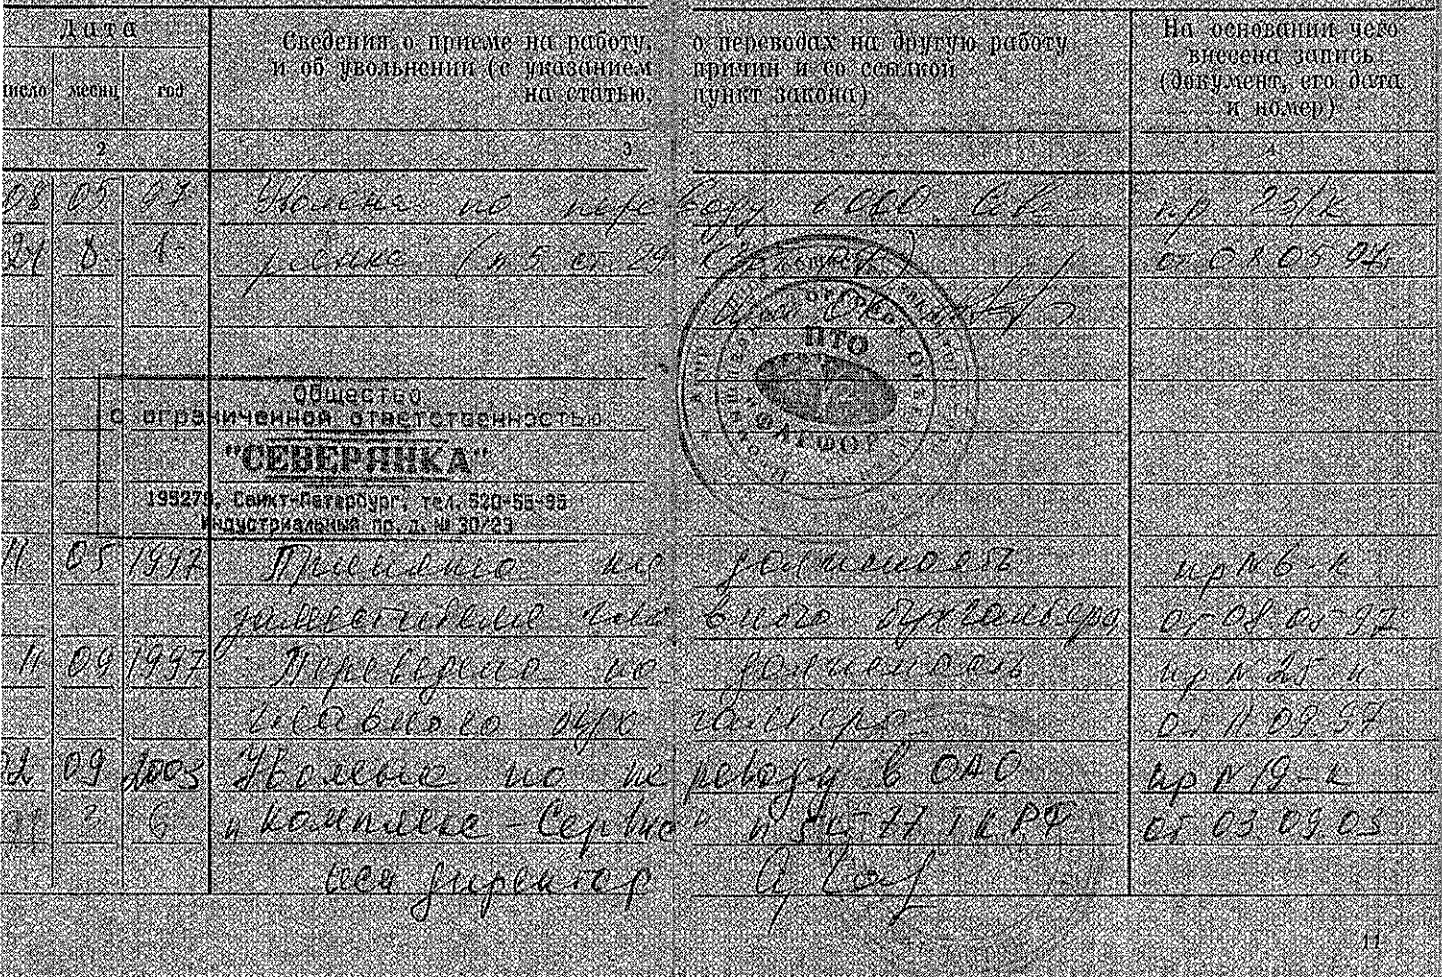 Дата
число месяц год
Сведения о приеме на работу, о переводах на другую работу
и об увольнении (с указанием причин и со ссылкой
на статью, пункт закона)
На основании чего
внесена запись
(документ, его дата
и номер)
2 3 4
08 05 97 Уволена по переводу в ООО Севе
пр 23/к
рянка (п 5 ст 29
от 08 05 97
ПТО
Общество
с ограниченной ответственностью
"СЕВЕРЯНКА"
195279, Санкт-Петербург, тел. 520-55-95
Индустриальный пр. д. № 30/23
11 05 1997 Принята на должность
пр №6-к
заместителя главного бухгалтера
от 08 05 97
11 09 1997 Переведена на должность
пр №25-к
главного бухгалтера
от 11 09 97
09 2003 Уволена по переводу в ОАО
пр №19-к
"Комплекс-Сервис" п 5 ст 77 ТК РФ
от 03 09 03
Ген директор
11